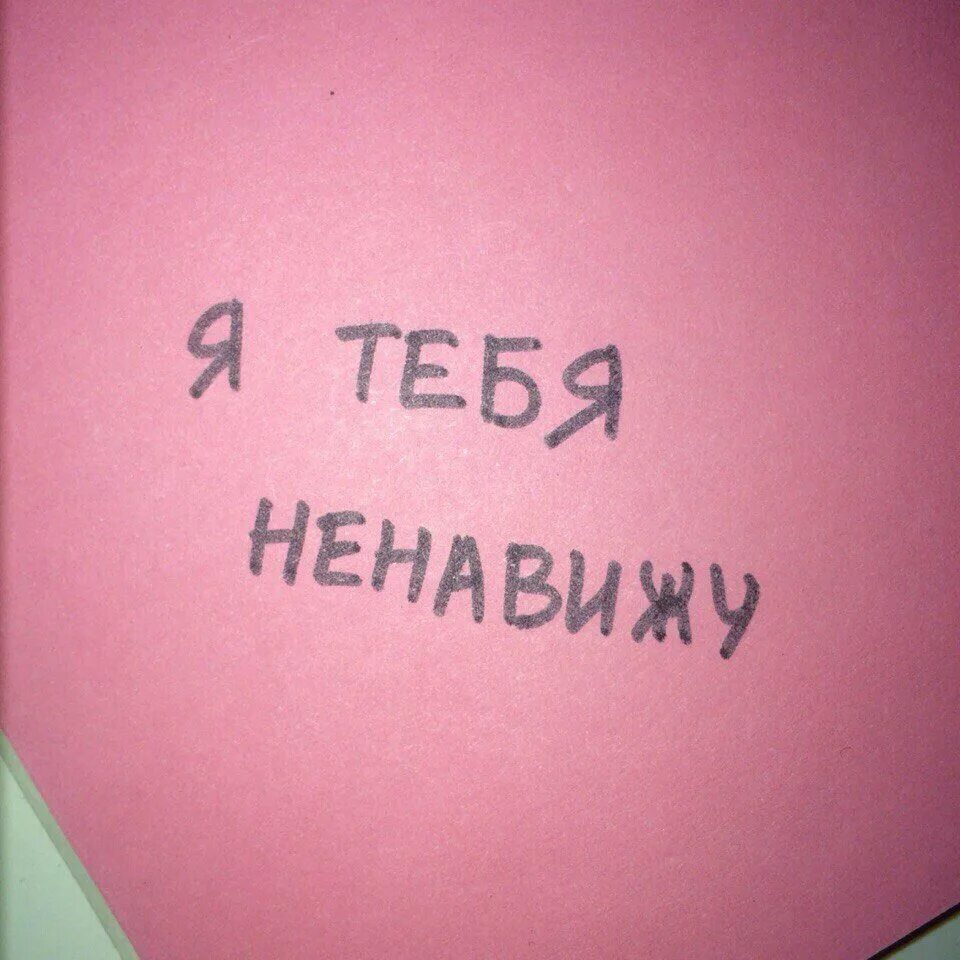 Я ТЕБЯ
НЕНАВИЖУ